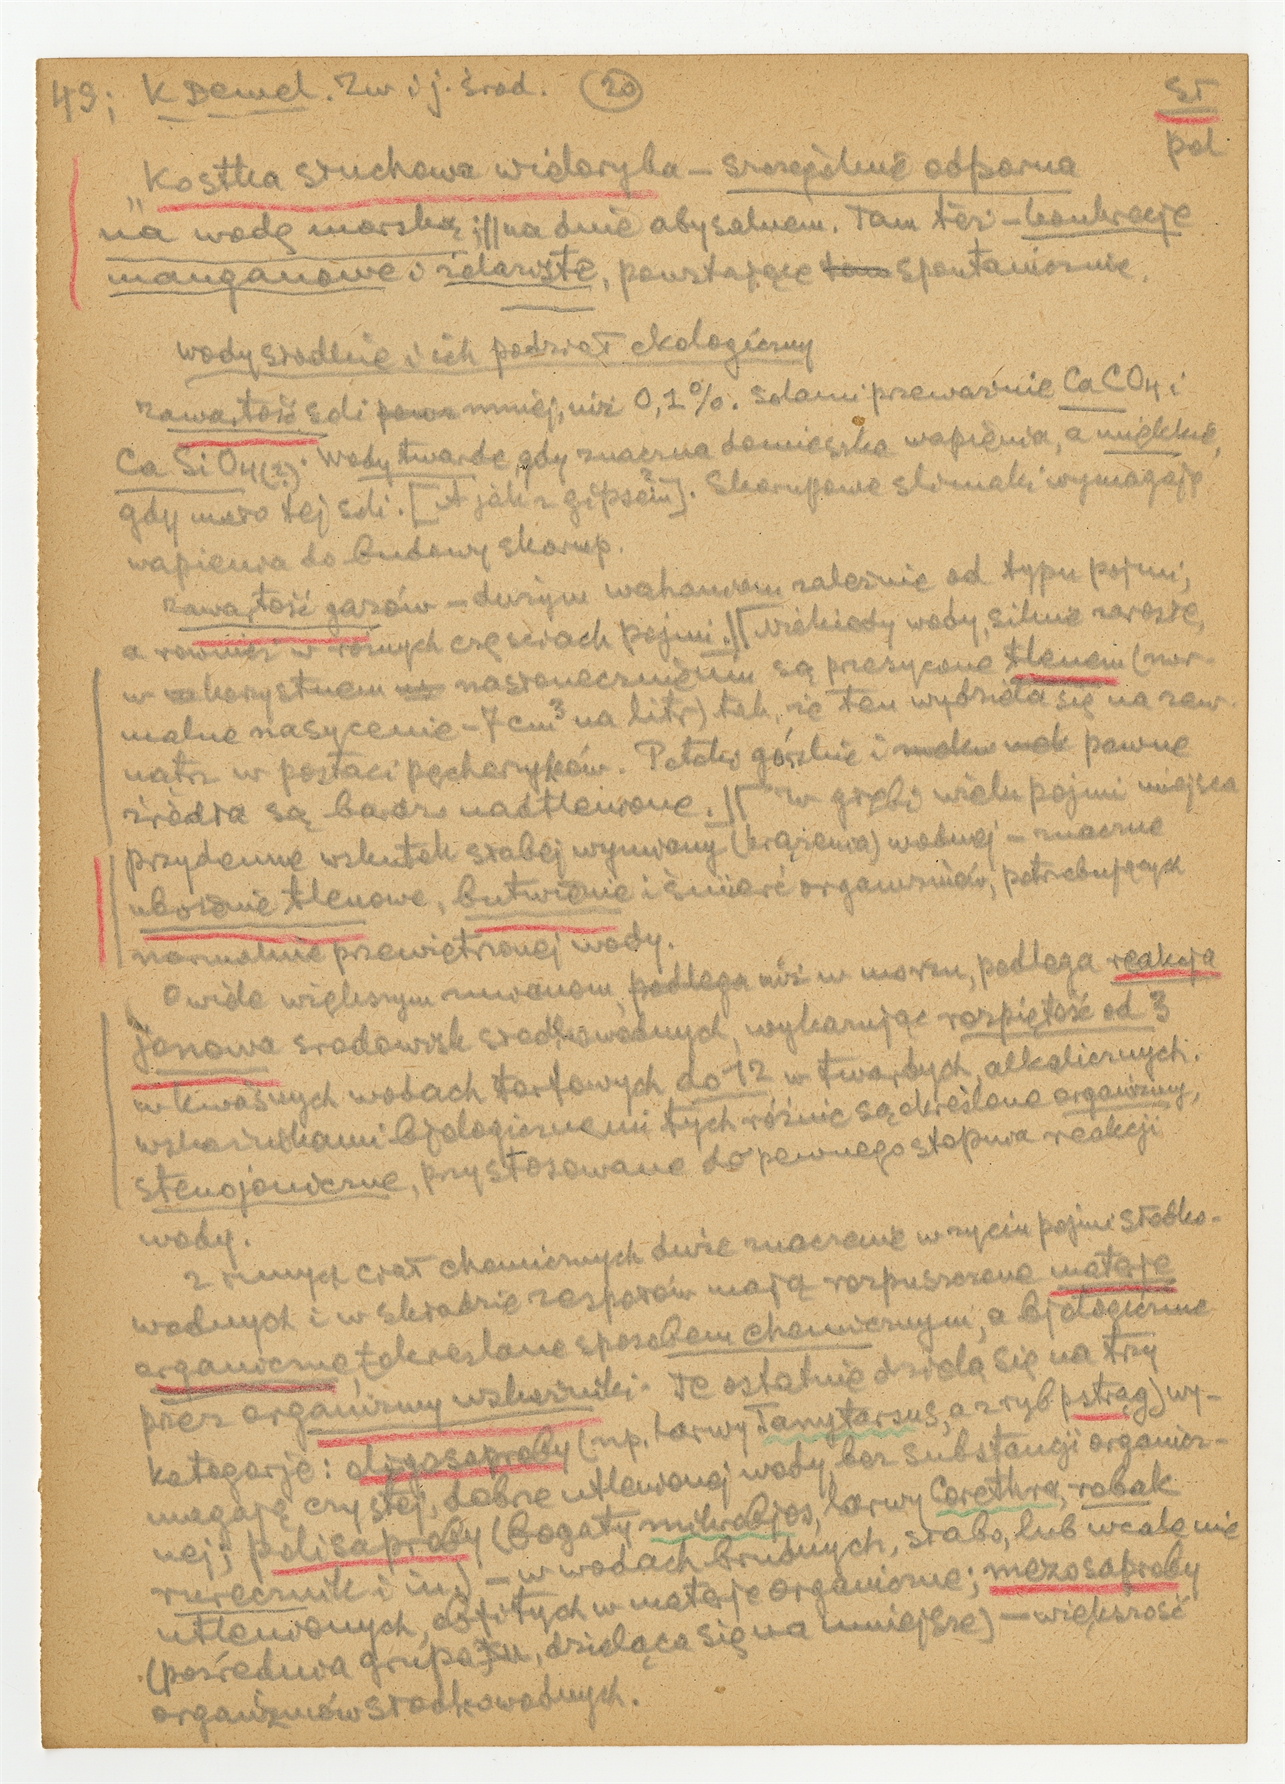 49; K Demel. Zw i j. środ. (20)
St
pol
"Kostka słuchowa wieloryba – szczególnie odporna
na wodę morską; // na dnie abysalnem. Tam też – konkrecje
manganowe i żelaziste, powstające spontanicznie.
Wody słodkie i ich podział ekologiczny
Zawartość soli mniej, niż 0,1%. Solami przeważnie CaCO4 i
CaSiO4(?). Wody twarde, gdy znaczna domieszka wapienia, a miękkie,
gdy mało tej soli. [A jak z gipsem?]. Skorupowe ślimaki wymagają
wapienia do budowy skorup.
Zawartość gazów – dużym wahaniom zależnie od typu pojmi,
a również w różnych częściach pojmi. // Niekiedy wody, silnie zarosłe,
w korzystnem nasłonecznieniu są przesycone tlenem (nor-
malne nasycenie – 7 cm3 na litr) tak, że ten wydziela się na zew-
nątrz w postaci pęcherzyków. Potoki górskie i pewne
źródła są bardzo nadtlenione. // W głębi wielu pojmi miejsca
przydenne wskutek słabej wymiany (krążenia) wodnej – znaczne
ubożenie tlenowe, butwienie i śmierć organizmów, potrzebujących
normalnie przewietrzonej wody.
O wiele większym zmianom, podlega niż w morzu, podlega reakcja
jonowa środowisk słodkowodnych, wykazując rozpiętość od 3
w kwaśnych wodach torfowych do 12 w twardych, alkalicznych.
wskaźnikami biologicznemi tych różnic są określone organizmy,
stenojoniczne, przystosowane do pewnego stopnia reakcji
wody.
Z innych ciał chemicznych duże znaczenie w życiu pojmi słodko-
wodnych i w składzie zespołów mają rozpuszczone materje
organiczne, określane sposobem chemicznym, a biologicznie
przez organizmy wskaźniki. Te ostatnie dzielą się na trzy
kategorje: oligosaproby (np. larwy Tanytarsus, a z ryb pstrąg) wy-
magają czystej, dobrze utlenionej wody, bez substancji organicz-
nej; polisaproby (bogaty mikrobjos, larwy Corethra, robak
rurecznik i in.) – w wodach brudnych, słabo, lub wcale nie
utlenionych, obfitych w materje organiczne; mezosaproby
(pośrednia grupa, dzieląca się na mniejsze) – większość
organizmów słodkowodnych.